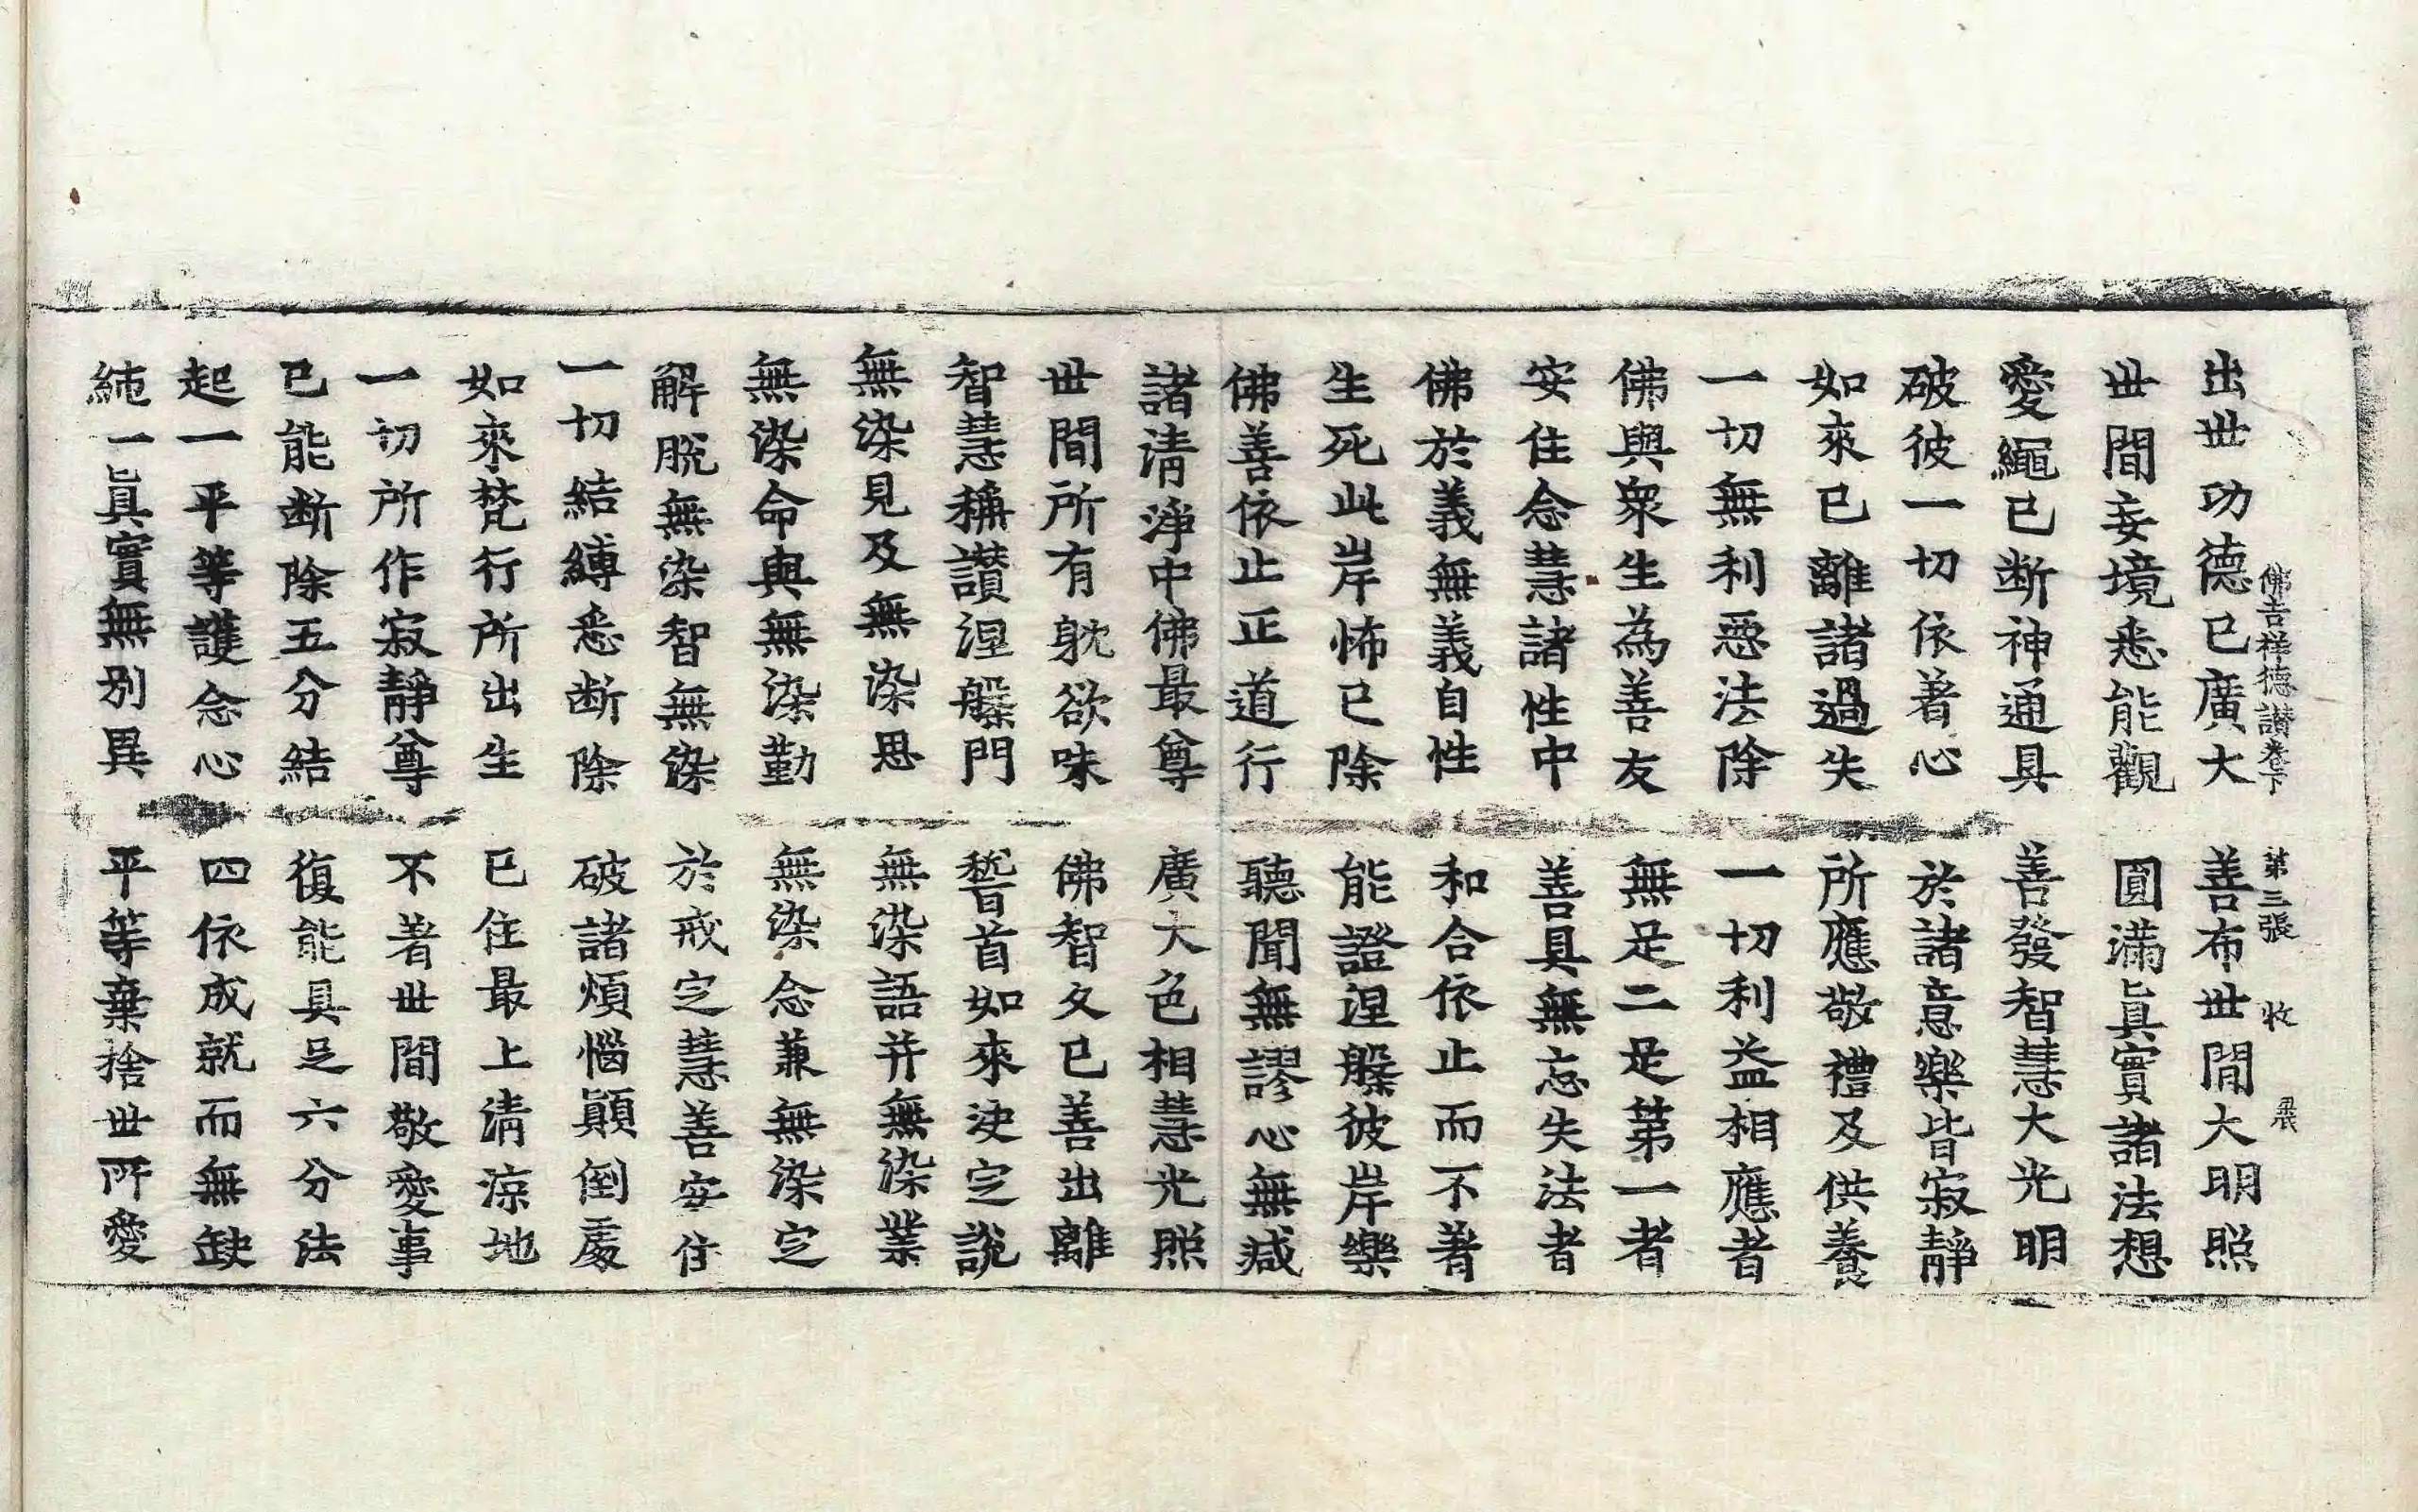 佛吉祥德讃卷下 第三張 收 展
出世功德已廣大 善布世間大明照
世間妄境悉能觀 圓滿眞實諸法想
愛繩已断神通具 善發智慧大光明
破彼一切依著心 於諸意樂皆寂靜
如來已離諸過失 所應敬禮及供養
一切無利惡法除 一切利益相應者
佛與衆生為善友 無足二足第一者
安住念慧諸性中 善具無忘失法者
佛於義無義自性 和合依止而不著
生死此岸怖已除 能證涅槃彼岸樂
佛善依止正道行 聽聞無謬心無減
諸清淨中佛最尊 廣大色相慧光照
世間所有躭欲味 佛智久已善出離
智慧稱讃涅槃門 稽首如來決定說
無染見及無染思 無染語并無染業
無染命與無染勤 無染念兼無染定
解脫無染智無染 於戒定慧善安住
一切結縛悉断除 破諸煩惱顚倒處
如來梵行所出生 已住最上清涼地
一切所作寂靜尊 不著世間敬愛事
已能断除五分結 復能具足六分法
起一平等護念心 四依成就而無缺
純一眞實無別異 平等棄捨世所愛